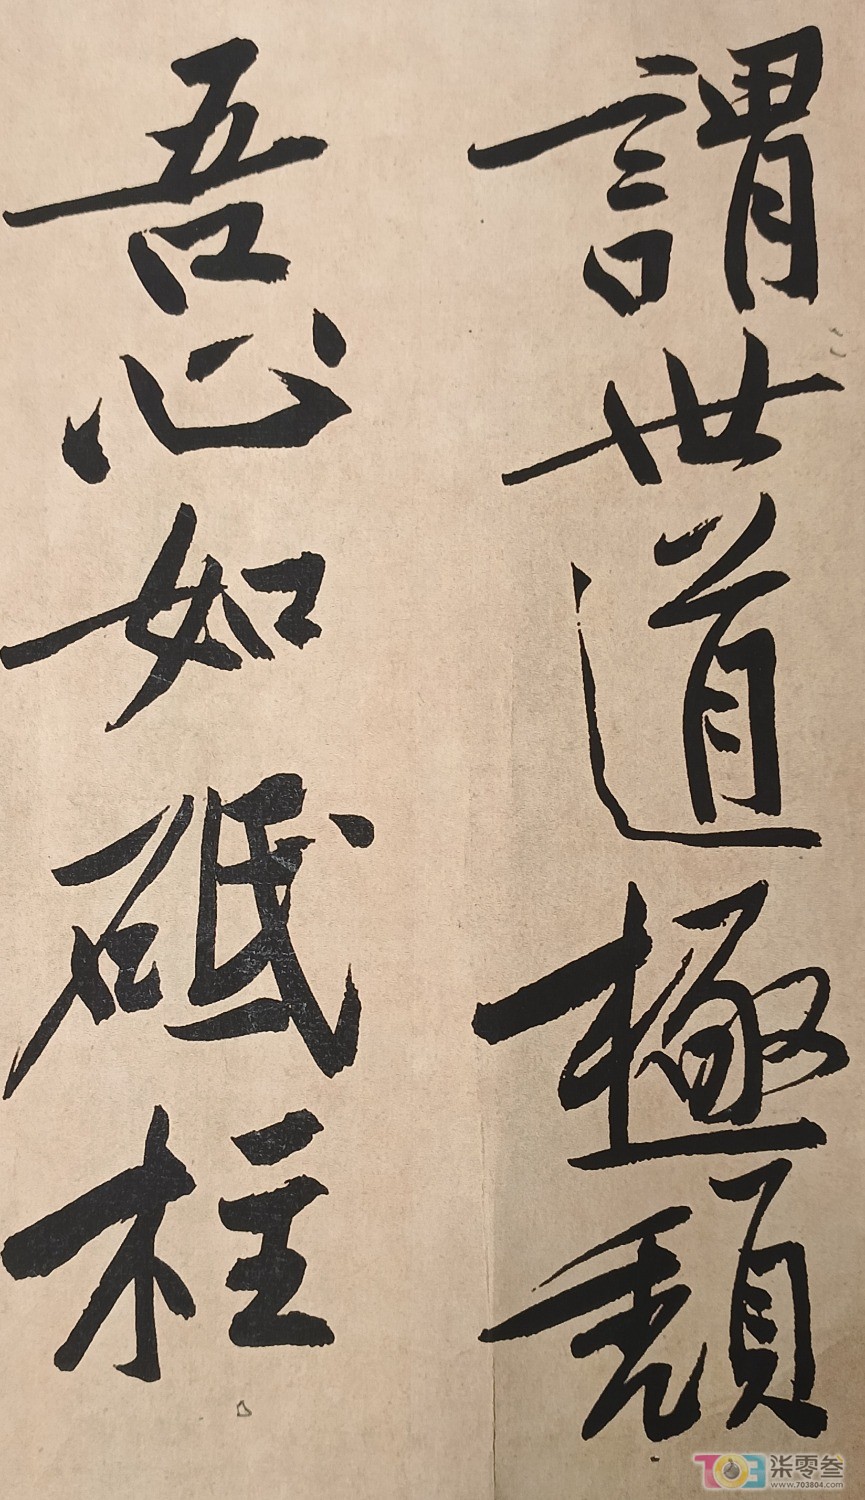 謂世道極頹
吾心如砥柱
703 柒零叁
www.703804.com